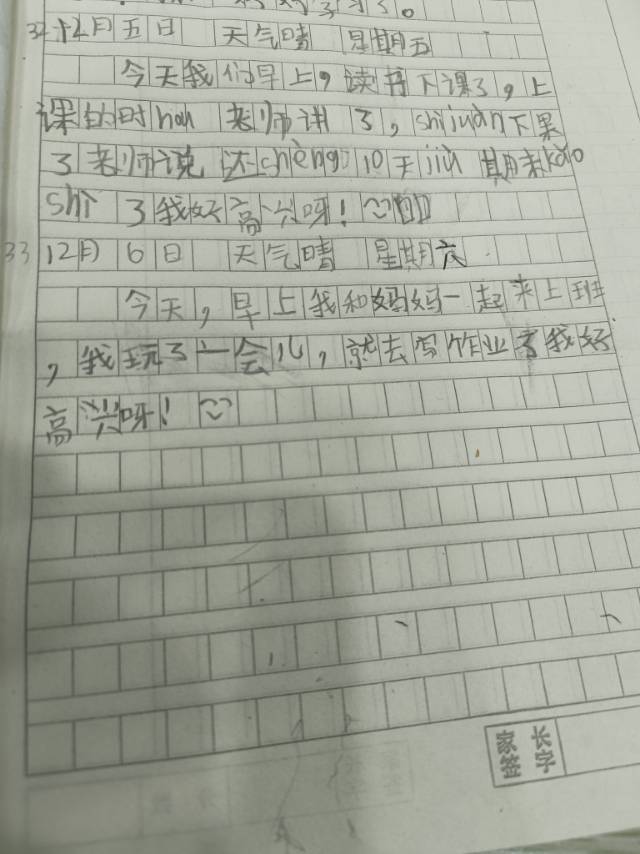 32 12月五日 天气晴 星期五
今天我们早上,读书下课了,上
课的时hou 老师讲了,shijuàn下课
了老师说 还chèng 10天jiù 期末kǎo
shì 了我好高兴呀!
33 12月6日 天气晴 星期六
今天,早上我和妈妈一起来上班
,我玩了一会儿,就去写作业了我好
高兴呀!
家长
签字